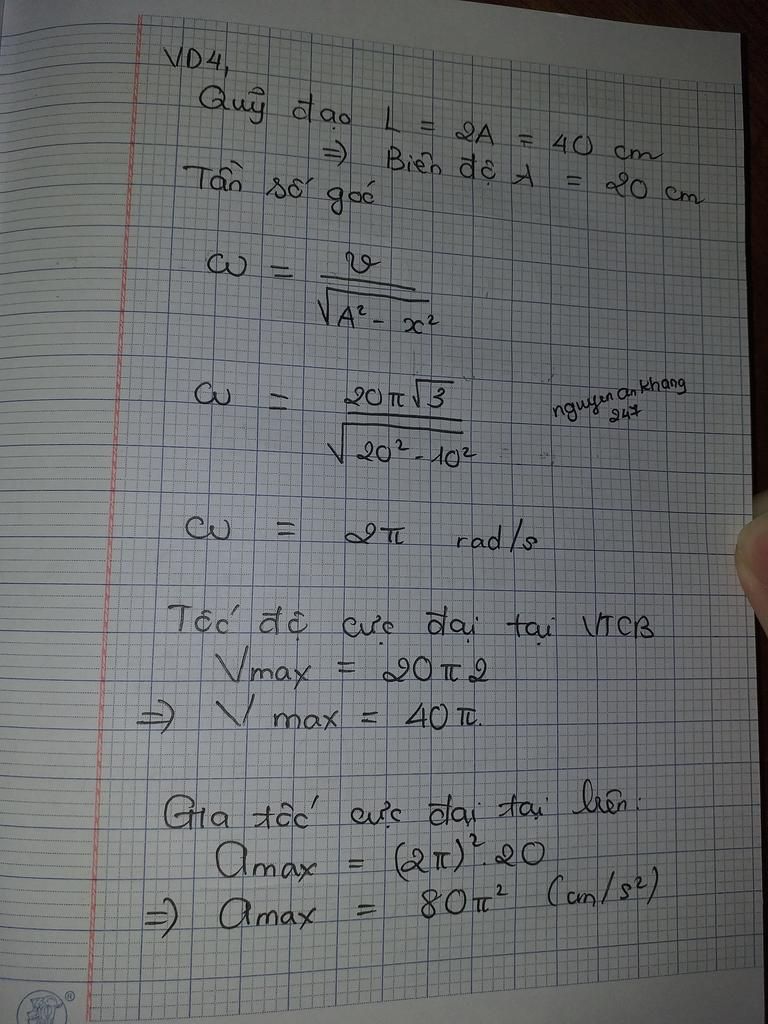 VD4,
Quỹ đạo L = 2A = 40 cm
⇒ Biên độ A = 20 cm
Tần số góc
ω = v / √(A² - x²)
ω = 20π√3 / √(20² - 10²)
nguyenankhang
247
ω = 2π rad/s
Tốc độ cực đại tại VTCB
Vmax = 20π2
⇒ Vmax = 40π.
Gia tốc cực đại tại biên:
amax = (2π)².20
⇒ amax = 80π² (cm/s²)